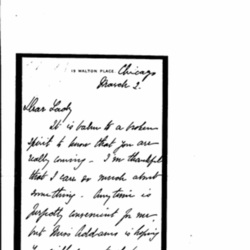 12 WALTON PLACE. Chicago
March 2.
Dear Lady
It is balm to a broken
spirit to know that you are
really coming. I'm thankful
that I care so much about
something. Any time is
perfectly convenient for me,
but Miss Addams is hoping